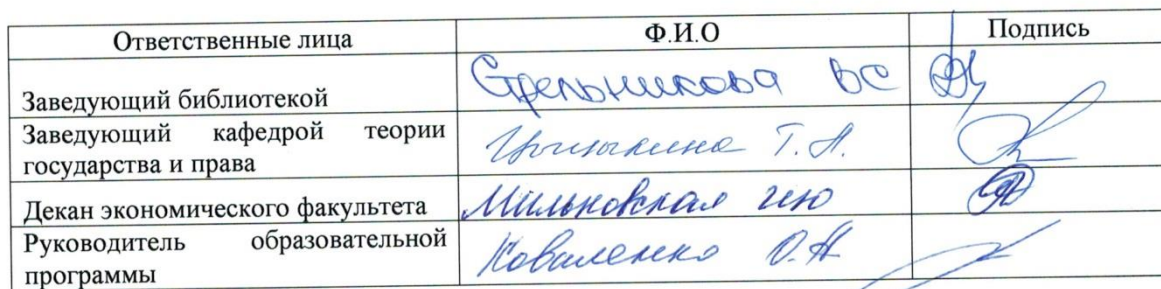 Ответственные лица Ф.И.О Подпись
Заведующий библиотекой Стрельникова ВС
Заведующий кафедрой теории
государства и права Т.А.
Декан экономического факультета Мильковская
Руководитель образовательной
программы Коваленко О.Н